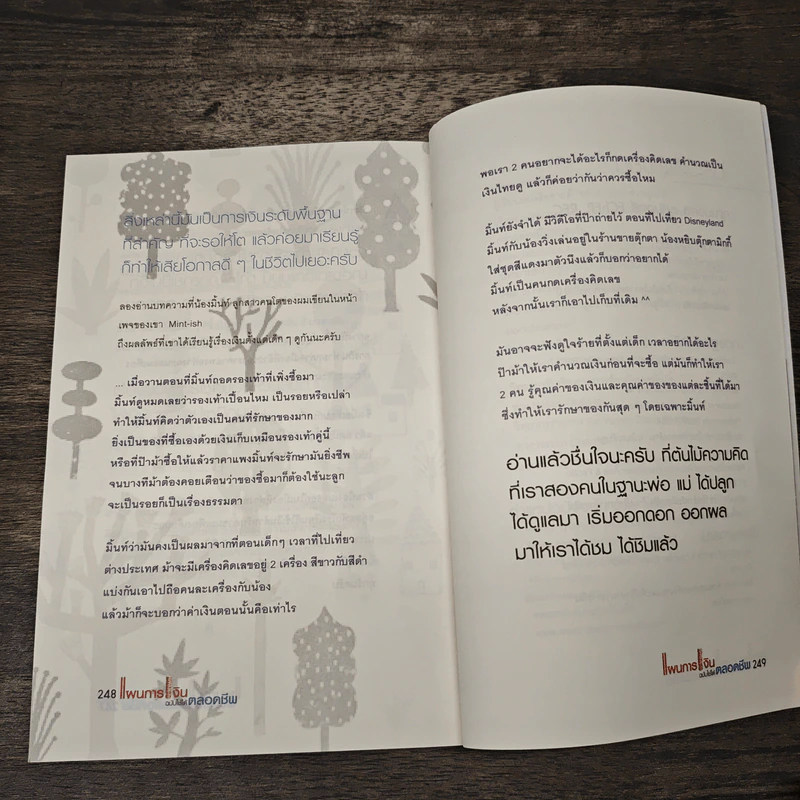 สิ่งเหล่านี้มันเป็นการเงินระดับพื้นฐาน
ที่สำคัญ ที่จะรอให้โต แล้วค่อยมาเรียนรู้
ก็ทำให้เสียโอกาสดี ๆ ในชีวิตไปเยอะครับ
ลองอ่านบทความที่น้องมิ้นท์ ลูกสาวคนโตของผมเขียนในหน้า
เพจของเขา Mint-ish
ถึงผลลัพธ์ที่เขาได้เรียนรู้เรื่องเงินตั้งแต่เด็ก ๆ ดูกันนะครับ
... เมื่อวานตอนที่มิ้นท์ถอดรองเท้าที่เพิ่งซื้อมา
มิ้นท์ดูหมดเลยว่ารองเท้าเปื้อนไหม เป็นรอยหรือเปล่า
ทำให้มิ้นท์คิดว่าตัวเองเป็นคนที่รักษาของมาก
ยิ่งเป็นของที่ซื้อเองด้วยเงินเก็บเหมือนรองเท้าคู่นี้
หรือที่ป้าม้าซื้อให้แล้วราคาแพงมิ้นท์จะรักษามันยิ่งชีพ
จนบางทีม้าต้องคอยเตือนว่าของซื้อมาก็ต้องใช้นะลูก
จะเป็นรอยก็เป็นเรื่องธรรมดา
มิ้นท์ว่ามันคงเป็นผลมาจากที่ตอนเด็กๆ เวลาที่ไปเที่ยว
ต่างประเทศ ม้าจะมีเครื่องคิดเลขอยู่ 2 เครื่อง สีขาวกับสีดำ
แบ่งกันเอาไปถือคนละเครื่องกับน้อง
แล้วม้าก็จะบอกว่าค่าเงินตอนนั้นคือเท่าไร
248 แผนการเงิน
ตลอดชีพ
พอเรา 2 คนอยากจะได้อะไรก็กดเครื่องคิดเลข คำนวณเป็น
เงินไทยดู แล้วก็ค่อยว่ากันว่าควรซื้อไหม
มิ้นท์ยังจำได้ มีวิดีโอที่ป้าถ่ายไว้ ตอนที่ไปเที่ยว Disneyland
มิ้นท์กับน้องวิ่งเล่นอยู่ในร้านขายตุ๊กตา น้องหยิบตุ๊กตามิกกี้
ใส่ชุดสีแดงมาตัวนึงแล้วก็บอกว่าอยากได้
มิ้นท์เป็นคนกดเครื่องคิดเลข
หลังจากนั้นเราก็เอาไปเก็บที่เดิม ^^
มันอาจจะฟังดูใจร้ายที่ตั้งแต่เด็ก เวลาอยากได้อะไร
ป้าม้าให้เราคำนวณเงินก่อนที่จะซื้อ แต่มันก็ทำให้เรา
2 คน รู้คุณค่าของเงินและคุณค่าของของแต่ละชิ้นที่ได้มา
ซึ่งทำให้เรารักษาของกันสุด ๆ โดยเฉพาะมิ้นท์
อ่านแล้วชื่นใจนะครับ ที่ต้นไม้ความคิด
ที่เราสองคนในฐานะพ่อ แม่ ได้ปลูก
ได้ดูแลมา เริ่มออกดอก ออกผล
มาให้เราได้ชม ได้ชิมแล้ว
แผนการเงิน
ตลอดชีพ 249